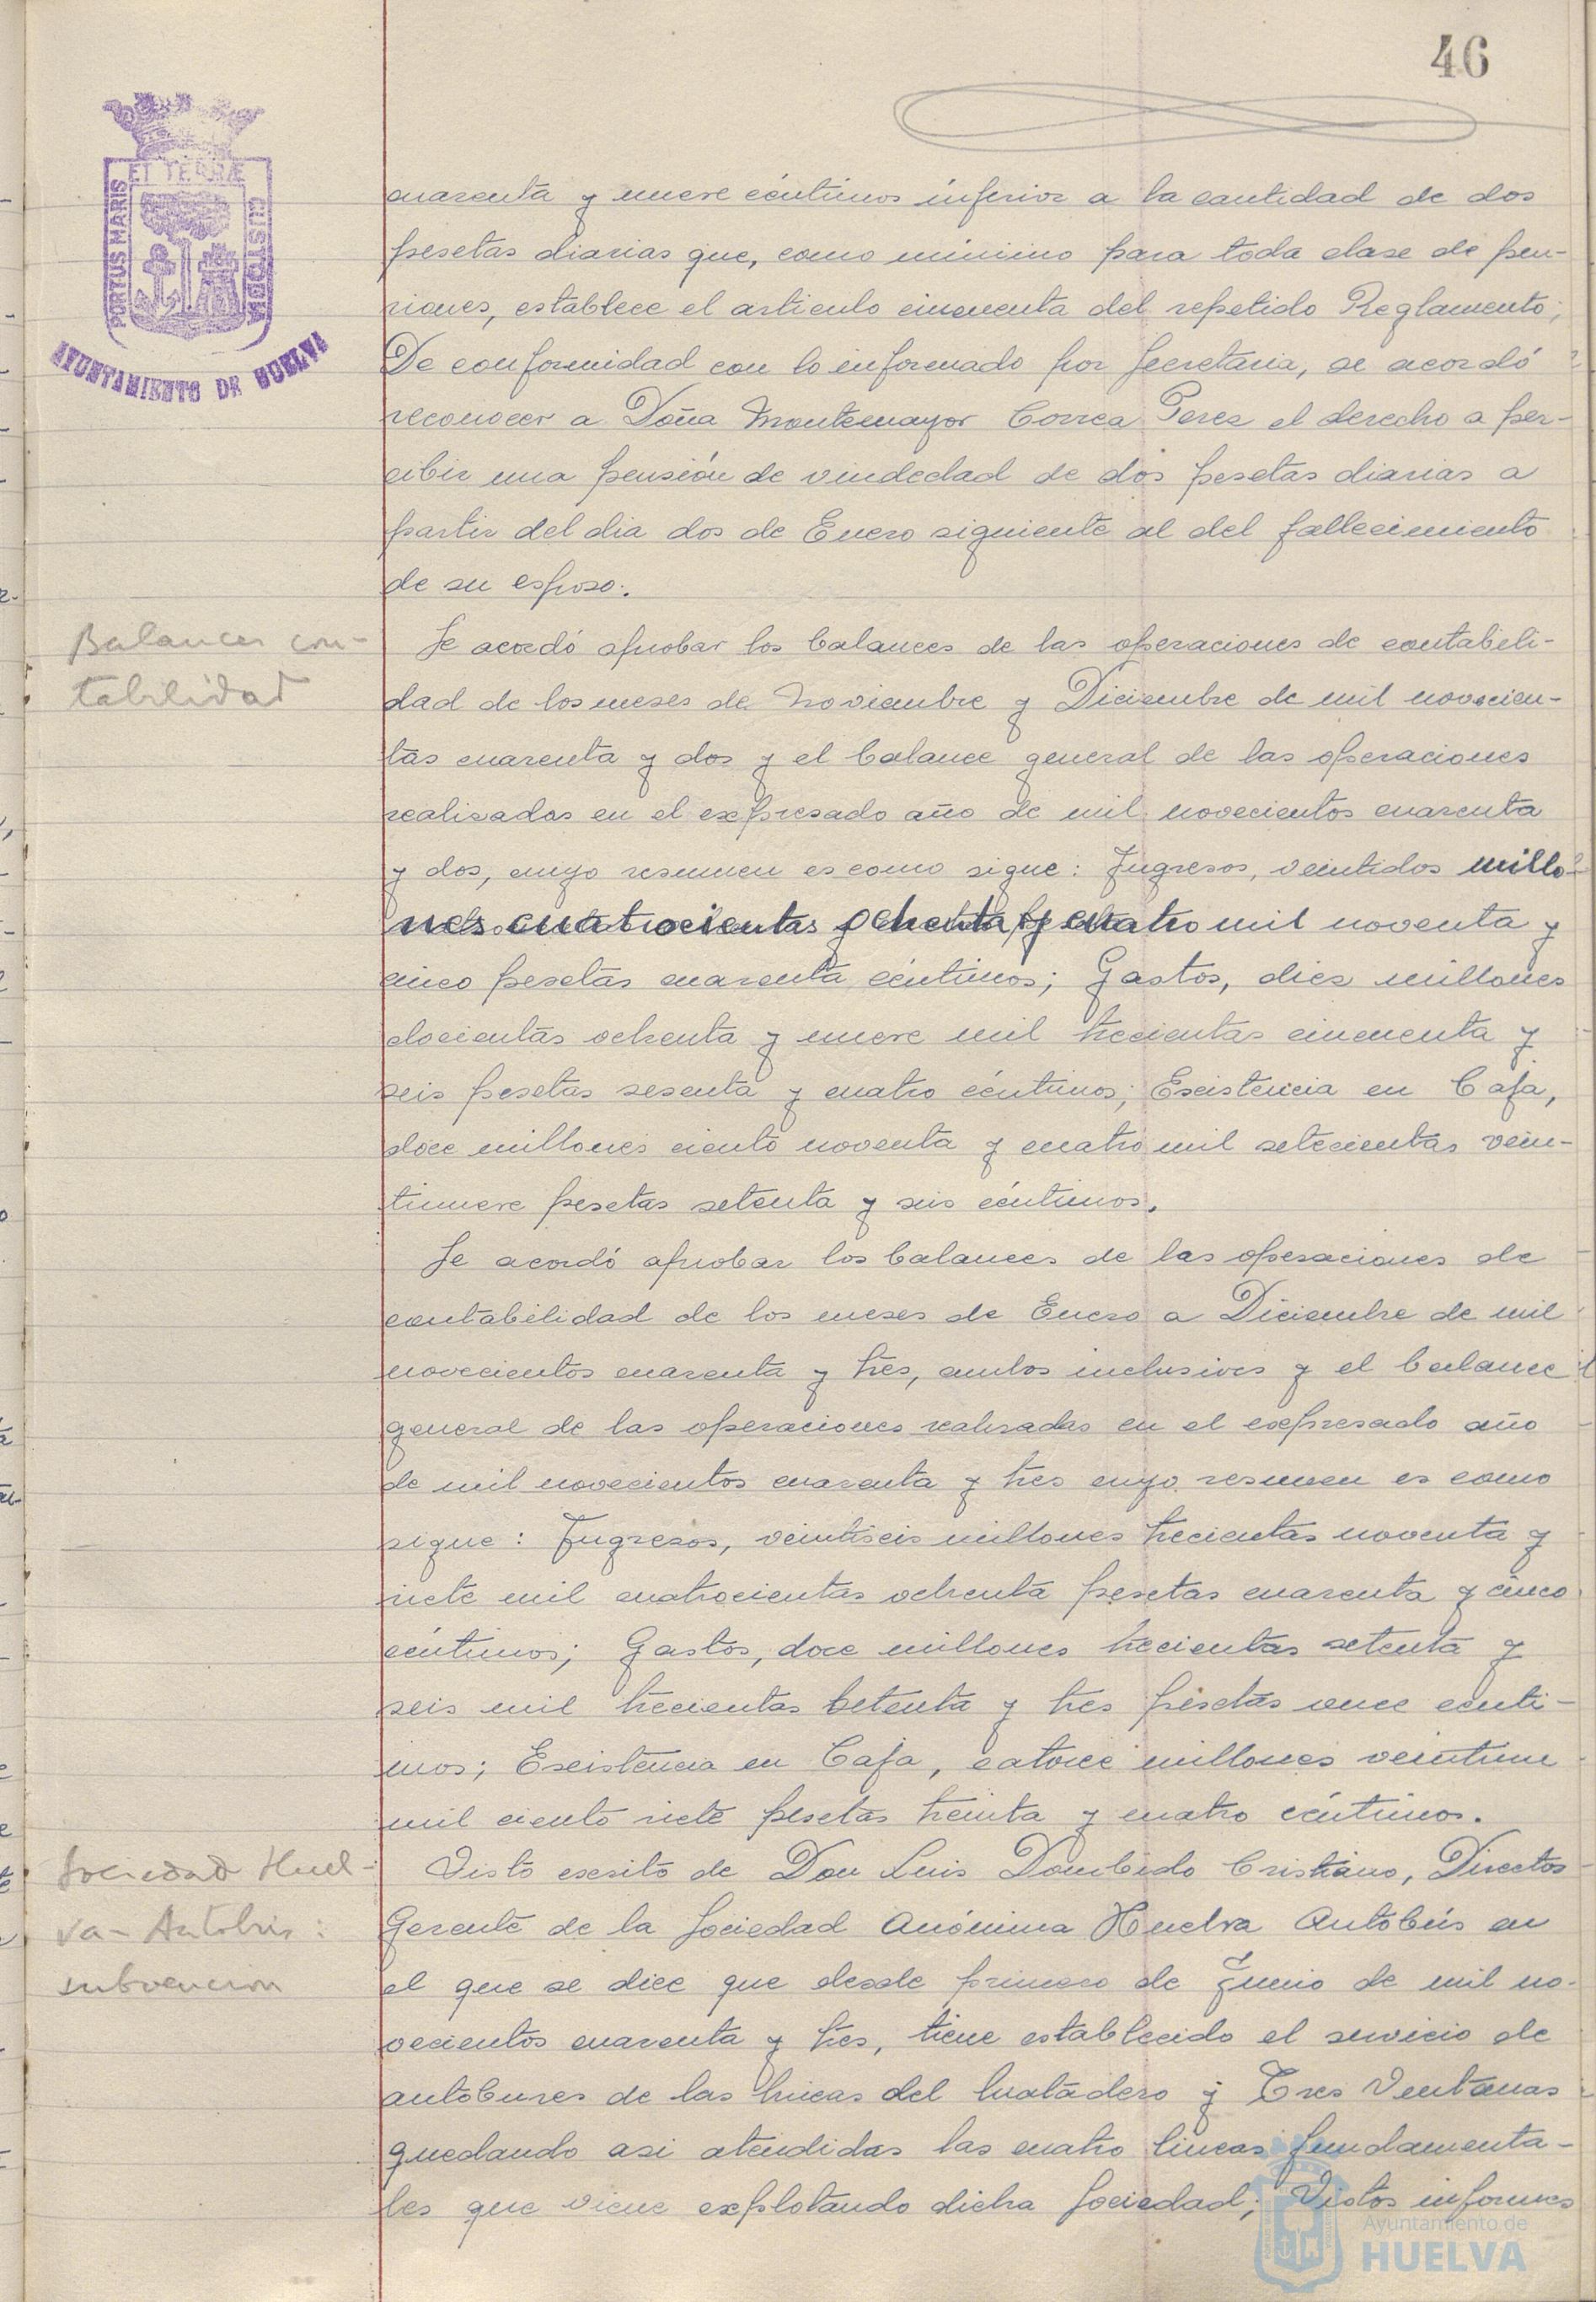 46
PORTUS MARIS ET TERRÆ CUSTODIAM
AYUNTAMIENTO DE HUELVA
cuarenta y nueve céntimos inferior a la cantidad de dos
pesetas diarias que, como minimo para toda clase de pen-
siones, establece el articulo cincuenta del repetido Reglamento;
De conformidad con lo informado por Secretaria, se acordó
reconocer a Doña Montemayor Correa Perez el derecho a per-
cibir una pensión de viudedad de dos pesetas diarias a
partir del dia dos de Enero siguiente al del fallecimiento
de su esposo.
Balances con-
tabilidad
Se acordó aprobar los balances de las operaciones de contabili-
dad de los meses de Noviembre y Diciembre de mil novecien-
tas cuarenta y dos y el balance general de las operaciones
realizadas en el expresado año de mil novecientos cuarenta
y dos, cuyo resumen es como sigue: Ingresos, veintidos millo-
nes cuatrocientas ochenta y cuatro mil noventa y
cinco pesetas cuarenta céntimos; Gastos, diez millones
docientas ochenta y nueve mil trecientas cincuenta y
seis pesetas sesenta y cuatro céntimos; Existencia en Caja,
doce millones ciento noventa y cuatro mil setecientas vein-
tinueve pesetas setenta y seis céntimos.
Se acordó aprobar los balances de las operaciones de
contabilidad de los meses de Enero a Diciembre de mil
novecientos cuarenta y tres, ambos inclusives y el balance
general de las operaciones realizadas en el expresado año
de mil novecientos cuarenta y tres cuyo resumen es como
sigue: Ingresos, veintiseis millones trecientas noventa y
siete mil cuatrocientas ochenta pesetas cuarenta y cinco
céntimos; Gastos, doce millones trecientas setenta y
seis mil trecientas setenta y tres pesetas once centi-
mos; Existencia en Caja, catorce millones veintiun
mil ciento siete pesetas treinta y cuatro céntimos.
Sociedad Huel-
va-Autobus:
subvencion
Visto escrito de Don Luis Bombido Cristiano, Director
Gerente de la Sociedad Anónima Huelva Autobús en
el que se dice que desde primero de Junio de mil no-
vecientos cuarenta y tres, tiene establecido el servicio de
autobuses de las lineas del Matadero y Tres Ventanas
quedando asi atendidas las cuatro lineas fundamenta-
les que viene explotando dicha Sociedad; Vistos informes
Ayuntamiento de
HUELVA